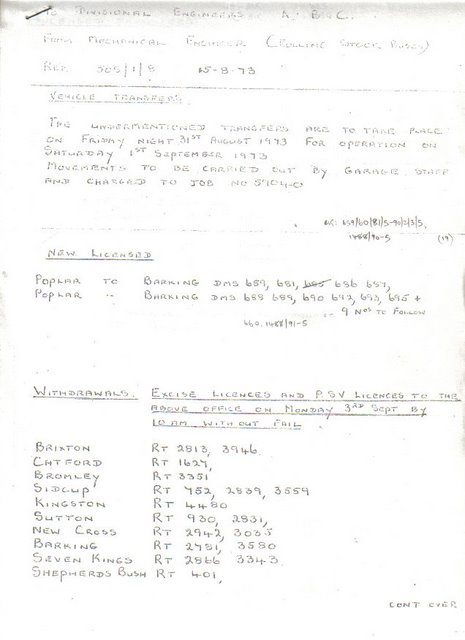 TO DIVISIONAL ENGINEERS A. B. C.
FROM MECHANICAL ENGINEER (ROLLING STOCK BUSES)
REF 505/1/8 15-8-73
VEHICLE TRANSFERS.
THE UNDERMENTIONED TRANSFERS ARE TO TAKE PLACE
ON FRIDAY NIGHT 31ST AUGUST 1973 FOR OPERATION ON
SATURDAY 1ST SEPTEMBER 1973
MOVEMENTS TO BE CARRIED OUT BY GARAGE STAFF
AND CHARGED TO JOB NO 5704-0
1488/90-5 (19)
NEW LICENSED
POPLAR TO BARKING DMS 659, 681, 685 686 687,
POPLAR " BARKING DMS 688 689, 690 692, 693, 695 +
9 NOS TO FOLLOW
660. 1488/91-5
WITHDRAWALS. EXCISE LICENCES AND P.SV LICENCES TO THE
ABOVE OFFICE ON MONDAY 3RD SEPT BY
10 AM WITHOUT FAIL
BRIXTON RT 2813, 3946
CATFORD RT 1627,
BROMLEY RT 3351
SIDCUP RT 752, 2839, 3559
KINGSTON RT 4480
SUTTON RT 930, 2831,
NEW CROSS RT 2942, 3035
BARKING RT 2781, 3580
SEVEN KINGS RT 2866 3343
SHEPHERDS BUSH RT 401,
CONT OVER